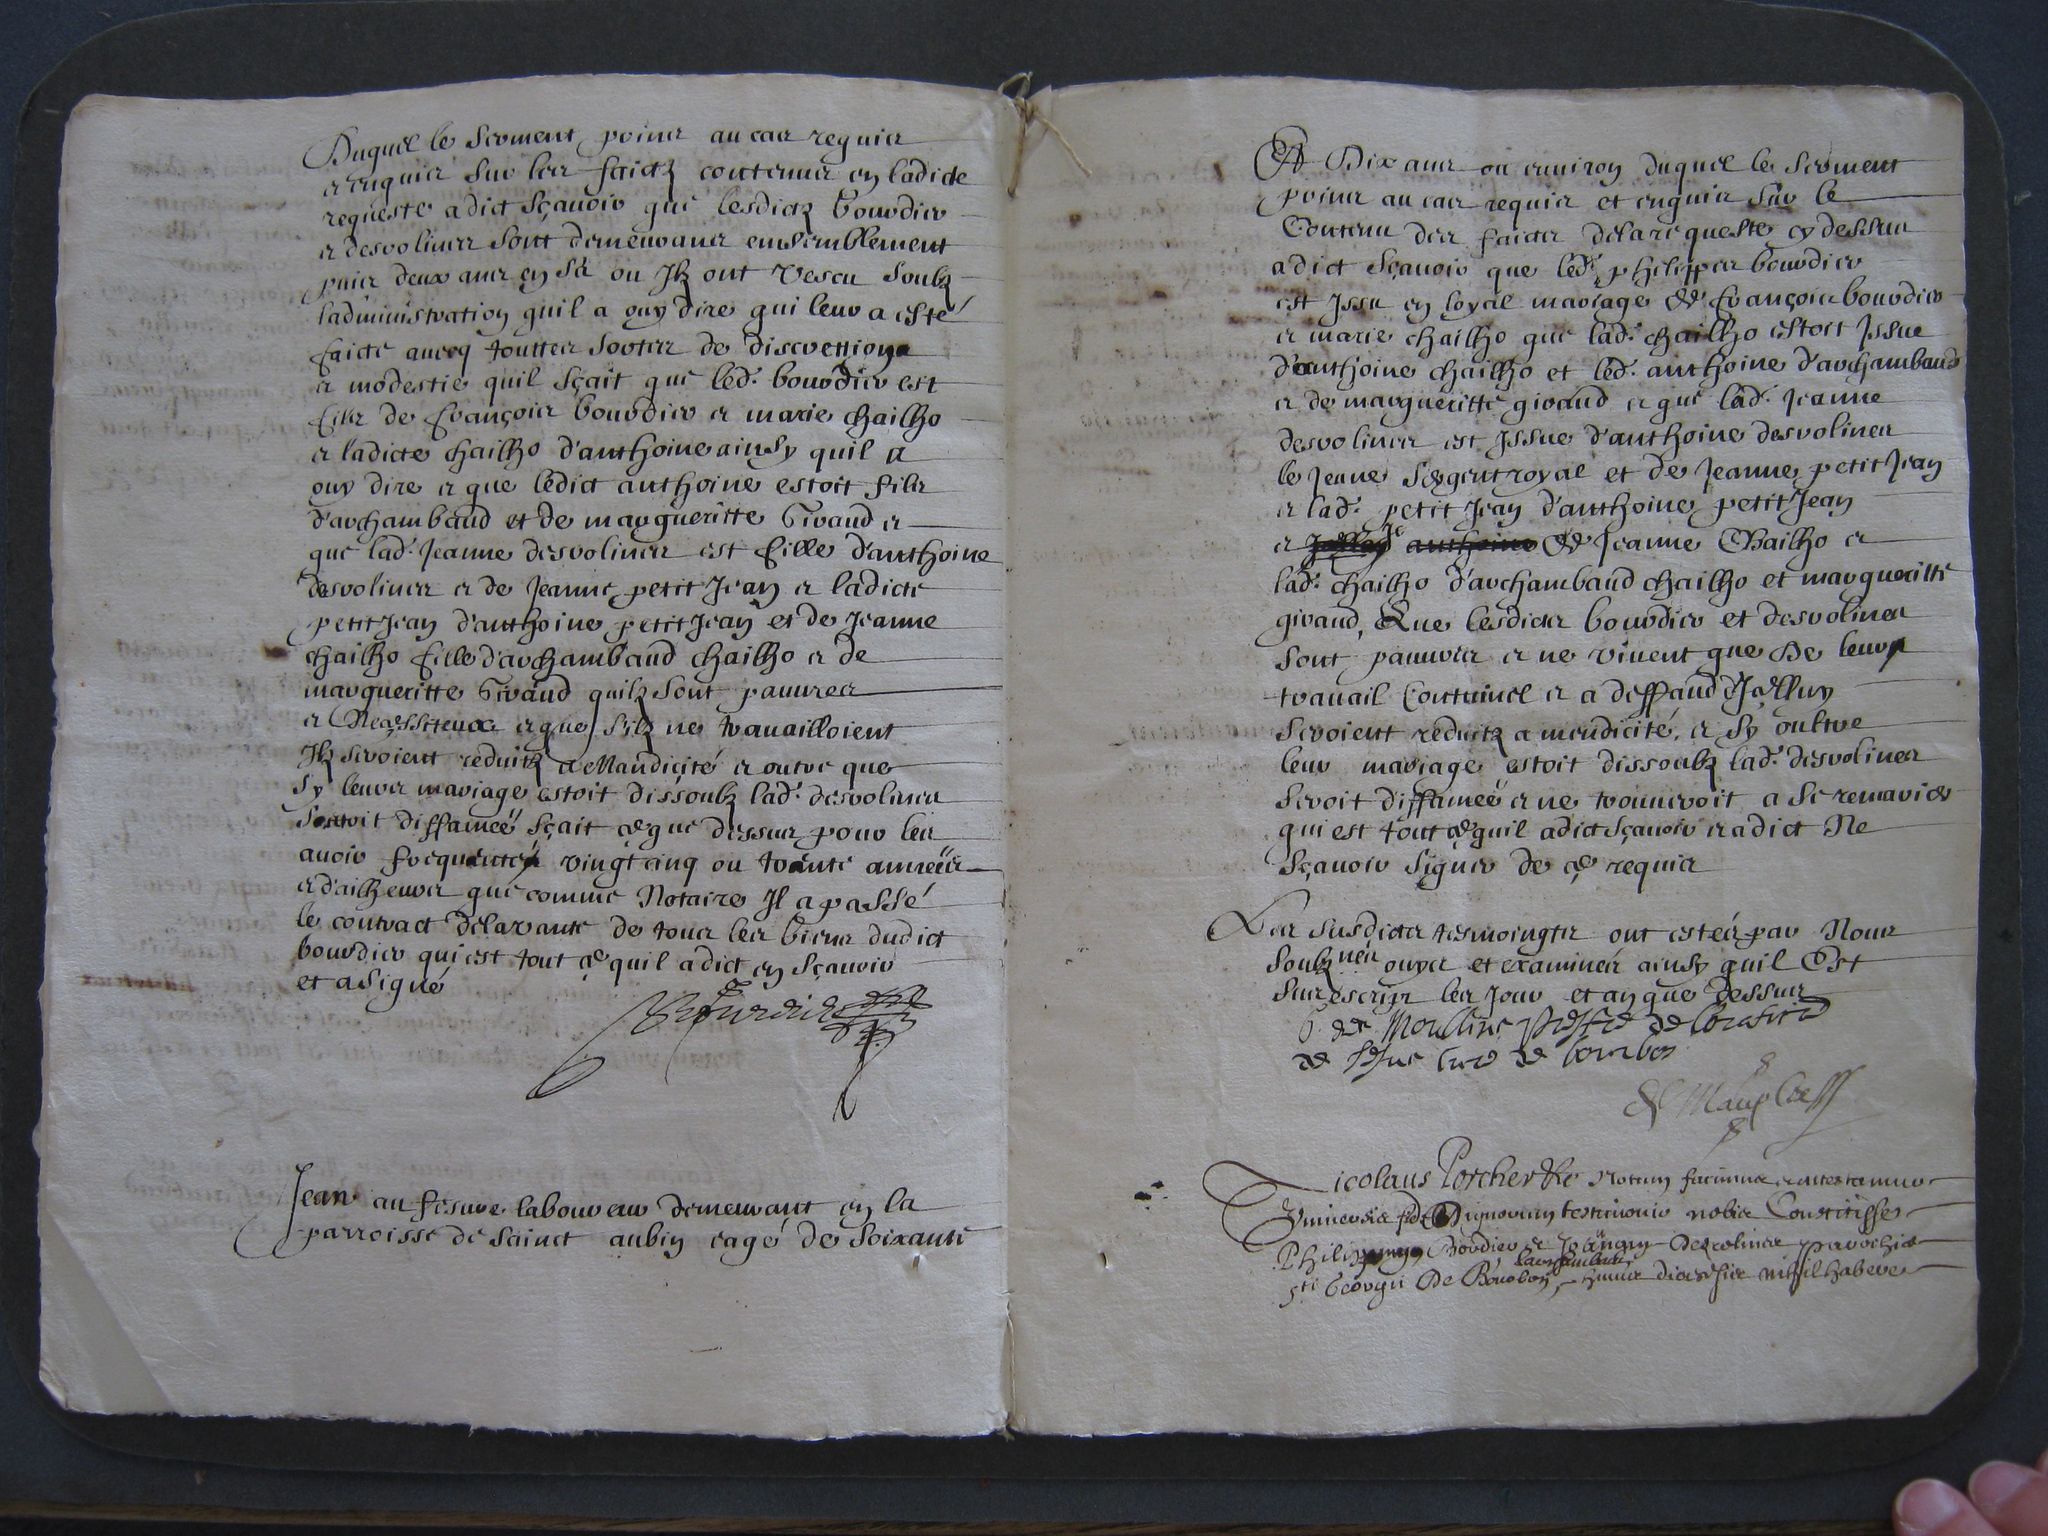 Duquel le serment prins au cas requis
et enquis sur les faictz contenus en ladicte
requeste a dict sçavoir que lesdictz bourdier
et desrolines sont demeurans ensemblement
puis deux ans en sa ou Ilz ont vescu soubz
ladministration quil a ouy dire qui leur a esté
faicte avecq touttes sortes de discrettion
et modestie quil sçait que led. bourdier est
filz de françois bourdier et marie chailho
et ladicte chailho d'anthoine ainsy quil a
ouy dire et que ledict anthoine estoit filz
d'archambaud et de margueritte Giraud et
que lad. Jeanne desrolines est fille d'anthoine
desrolines et de Jeanne petit Jean et ladicte
petit Jean d'anthoine petit Jean et de Jeanne
chailho fille d'archambaud chailho et de
margueritte Giraud quilz sont pauvres
et Necessiteux et que silz ne travailloient
Ilz seroient reduitz a Mandicité et outre que
sy leurs mariage estoit dissoubz lad. desrolines
seroit diffameé sçait ce que dessus pour les
avoir frequentés vingt cinq ou trante anneés
et d'ailheurs que comme Notaire Il a passé
le contract de la vante de tous les biens dudict
bourdier qui est tout ce quil a dict en sçavoir
et a signé
Jean aufesvre laboureur demeurant en la
parroisse de sainct aubin eagé de soixante
Et Dix ans ou environ duquel le serment
prins au cas requis et enquis sur le
Contenu des faictz de la requeste cy dessus
a dict sçavoir que led. philippes bourdier
est Issu en loyal mariage de françois bourdier
et marie chailho que lad. chailho estoit Issue
d'anthoine chailho et led. anthoine d'archambaud
et de margueritte giraud et que lad. Jeanne
desrolines est Issue d'anthoine desrolines
le Jeune sergent royal et de Jeanne petit Jean
et lad. petit Jean d'anthoine petit Jean
et de Jeanne Chailho et
lad. chailho d'archambaud chailho et margueritte
giraud, Que lesdictes bourdier et desrolines
sont pauvres et ne vivent que de leur
travail Contunuel et a deffaud d'Icelluy
seroient reduitz a mendicité, et sy oultre
leur mariage estoit dissoubz lad. desrolines
seroit diffameé et ne trouveroit a se remarier
qui est tout ce quil a dict sçavoir et a dict Ne
sçavoir signer de ce requis
Les susdictes tesmoingtz ont estés par Nous
soubznés ouys et examinés ainsy quil Est
sus escript les Jour et an que dessus
de Moulins
Nicolaus Porcher &c Notum facimus et attestamur
Universis fide dignorum testimonio nobis Constitisse
Philippum Bordier et Johannam Desrolines parochiae
sti Georgii De Bourbon, huius diocesis nihil habere